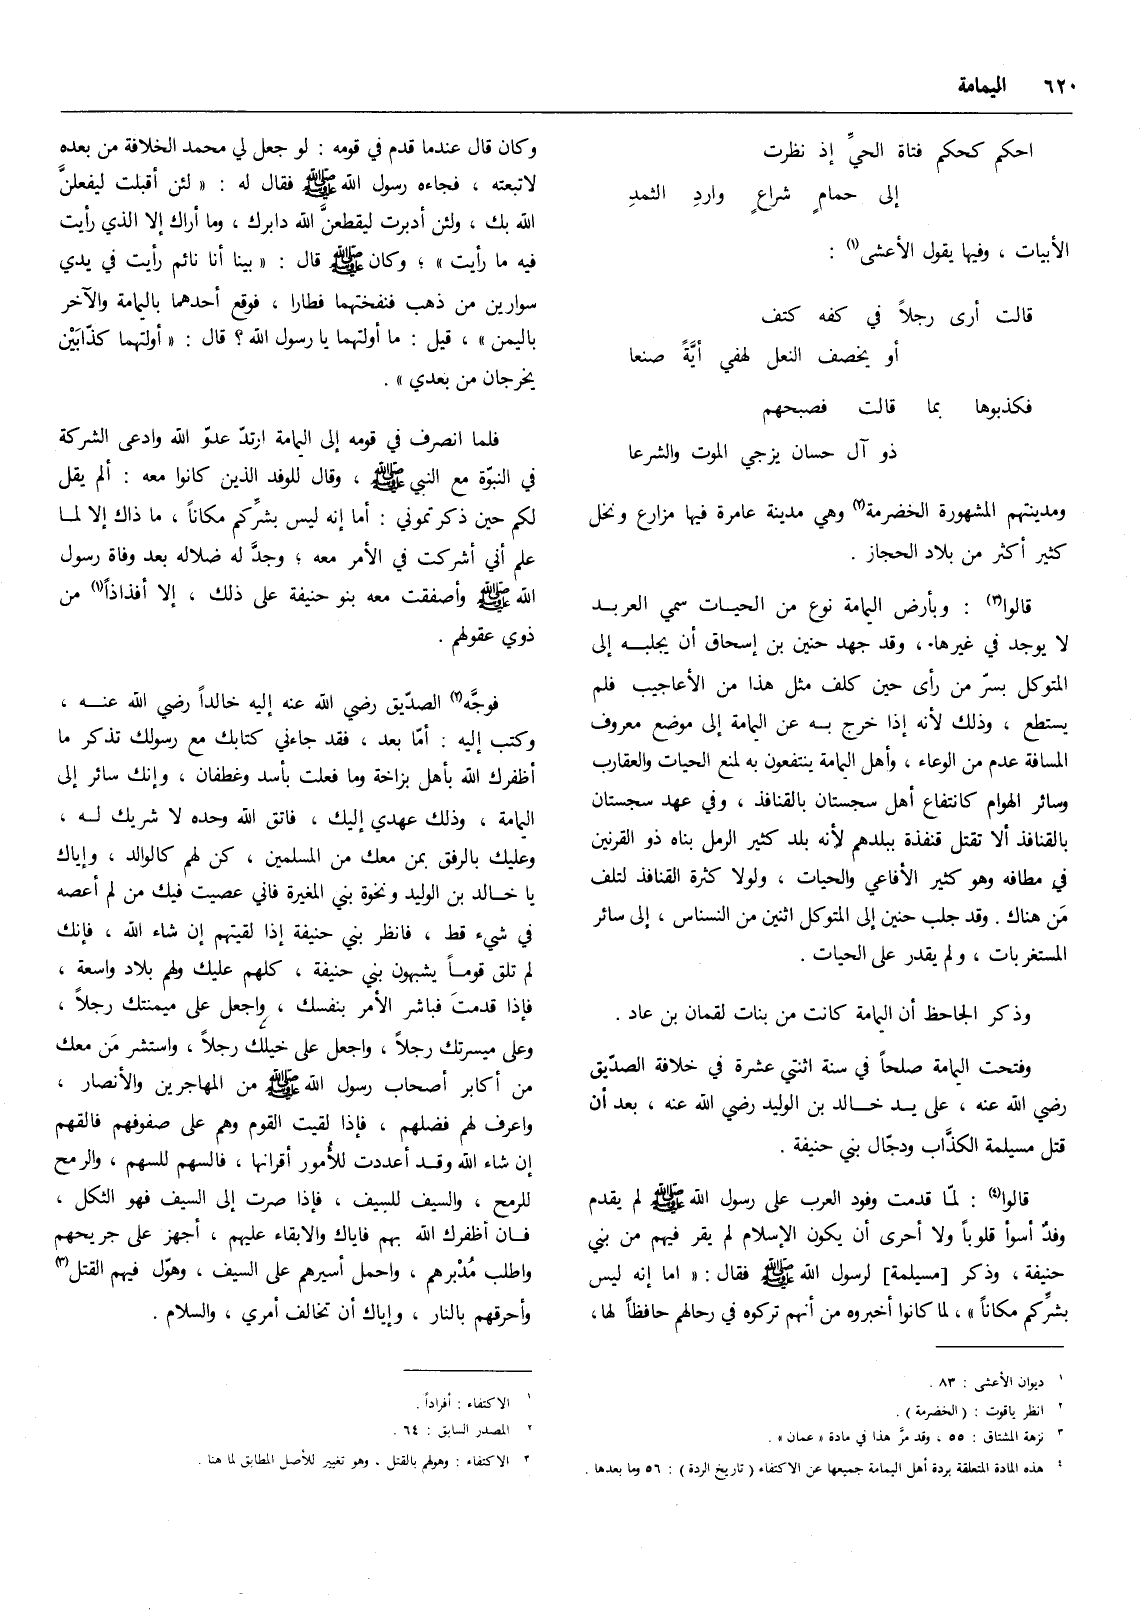 ٦٢٠ اليمامة
احكم كحكم فتاة الحيِّ إذ نظرت
إلى حمامٍ شراعٍ واردِ الثمدِ
الأبيات ، وفيها يقول الأعشى(١) :
قالت أرى رجلاً في كفه كتف
أو يخصف النعل لهفي أيَّةً صنعا
فكذبوها بما قالت فصبحهم
ذو آل حسان يزجي الموت والشرعا
ومدينتهم المشهورة الخضرمة(٢) وهي مدينة عامرة فيها مزارع ونخل
كثير أكثر من بلاد الحجاز .
قالوا(٣) : وبأرض اليمامة نوع من الحيات سمي العربد
لا يوجد في غيرها ، وقد جهد حنين بن إسحاق أن يجلبه إلى
المتوكل بسرّ من رأى حين كلف مثل هذا من الأعاجيب فلم
يستطع ، وذلك لأنه إذا خرج به عن اليمامة إلى موضع معروف
المسافة عدم من الوعاء ، وأهل اليمامة ينتفعون به لمنع الحيات والعقارب
وسائر الهوام كانتفاع أهل سجستان بالقنافذ ، وفي عهد سجستان
بالقنافذ ألا تقتل قنفذة ببلدهم لأنه بلد كثير الرمل بناه ذو القرنين
في مطافه وهو كثير الأفاعي والحيات ، ولولا كثرة القنافذ لتلف
مَن هناك . وقد جلب حنين إلى المتوكل اثنين من النسناس ، إلى سائر
المستغربات ، ولم يقدر على الحيات .
وذكر الجاحظ أن اليمامة كانت من بنات لقمان بن عاد .
وفتحت اليمامة صلحاً في سنة اثنتي عشرة في خلافة الصدّيق
رضي الله عنه ، على يد خالد بن الوليد رضي الله عنه ، بعد أن
قتل مسيلمة الكذَّاب ودجّال بني حنيفة .
قالوا(٤) : لمّا قدمت وفود العرب على رسول الله ﷺ لم يقدم
وفدٌ أسوأ قلوباً ولا أحرى أن يكون الإسلام لم يقر فيهم من بني
حنيفة ، وذكر [مسيلمة] لرسول الله ﷺ فقال : « اما إنه ليس
بشرِّكم مكاناً » ، لما كانوا أخبروه من أنهم تركوه في رحالهم حافظاً لها ،
١ ديوان الأعشى : ٨٣ .
٢ انظر ياقوت : (الخضرمة) .
٣ نزهة المشتاق : ٥٥ ، وقد مرَّ هذا في مادة « عمان » .
٤ هذه المادة المتعلقة بردة أهل اليمامة جميعها عن الاكتفاء (تاريخ الردة) : ٥٦ وما بعدها .
وكان قال عندما قدم في قومه : لو جعل لي محمد الخلافة من بعده
لاتبعته ، فجاءه رسول الله ﷺ فقال له : « لئن أقبلت ليفعلنَّ
الله بك ، ولئن أدبرت ليقطعنَّ الله دابرك ، وما أراك إلا الذي رأيت
فيه ما رأيت » ؛ وكان ﷺ قال : « بينا أنا نائم رأيت في يدي
سوارين من ذهب فنفختهما فطارا ، فوقع أحدهما باليمامة والآخر
باليمن » ، قيل : ما أولتهما يا رسول الله ؟ قال : « أولتهما كذّابَيْن
يخرجان من بعدي » .
فلما انصرف في قومه إلى اليمامة ارتدّ عدوّ الله وادعى الشركة
في النبوّة مع النبي ﷺ ، وقال للوفد الذين كانوا معه : ألم يقل
لكم حين ذكرتموني : أما إنه ليس بشرِّكم مكاناً ، ما ذاك إلا لما
علم أني أشركت في الأمر معه ؛ وجدَّ له ضلاله بعد وفاة رسول
الله ﷺ وأصفقت معه بنو حنيفة على ذلك ، إلا أفذاذاً(١) من
ذوي عقولهم .
فوجَّه(٢) الصدّيق رضي الله عنه إليه خالداً رضي الله عنه ،
وكتب إليه : أمّا بعد ، فقد جاءني كتابك مع رسولك تذكر ما
أظفرك الله بأهل بزاخة وما فعلت بأسد وغطفان ، وإنك سائر إلى
اليمامة ، وذلك عهدي إليك ، فاتق الله وحده لا شريك له ،
وعليك بالرفق بمن معك من المسلمين ، كن لهم كالوالد ، وإياك
يا خالد بن الوليد ونخوة بني المغيرة فاني عصيت فيك من لم أعصه
في شيء قط ، فانظر بني حنيفة إذا لقيتهم إن شاء الله ، فإنك
لم تلق قوماً يشبهون بني حنيفة ، كلهم عليك ولهم بلاد واسعة ،
فإذا قدمتَ فباشر الأمر بنفسك ، واجعل على ميمنتك رجلاً ،
وعلى ميسرتك رجلاً ، واجعل على خيلك رجلاً ، واستشر مَن معك
من أكابر أصحاب رسول الله ﷺ من المهاجرين والأنصار ،
واعرف لهم فضلهم ، فإذا لقيت القوم وهم على صفوفهم فالقهم
إن شاء الله وقد أعددت للأُمور أقرانها ، فالسهم للسهم ، والرمح
للرمح ، والسيف للسيف ، فإذا صرت إلى السيف فهو الثكل ،
فان أظفرك الله بهم فاياك والابقاء عليهم ، أجهز على جريحهم
واطلب مُدْبرهم ، واحمل أسيرهم على السيف ، وهوّل فيهم القتل(٣)
وأحرقهم بالنار ، وإياك أن تخالف أمري ، والسلام .
١ الاكتفاء : أفراداً .
٢ المصدر السابق : ٦٤ .
٣ الاكتفاء : وهولهم بالقتل ، وهو تغيير للأصل المطابق لما هنا .